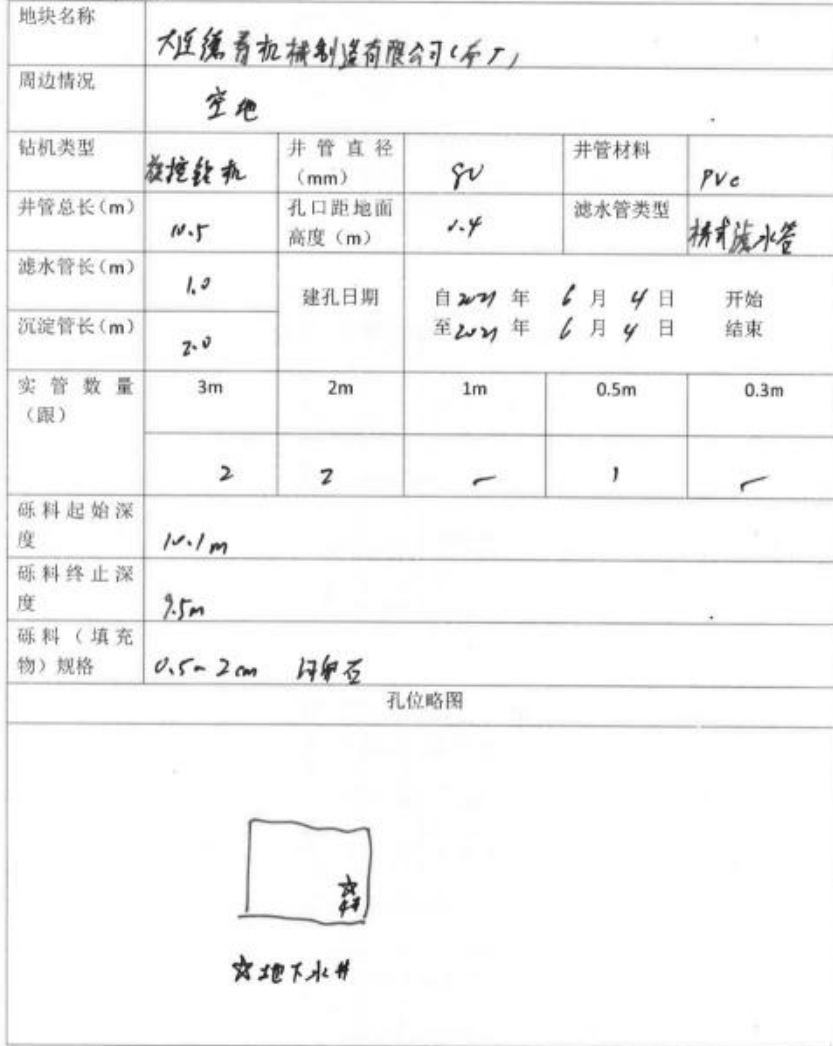 地块名称
大连德寿机械制造有限公司(东厂)
周边情况
空地
钻机类型
旋挖钻机
井管直径
(mm)
90
井管材料
PVC
井管总长(m)
10.5
孔口距地面
高度(m)
0.4
滤水管类型
桥式滤水管
滤水管长(m)
1.0
建孔日期
自2021年 6月 4日 开始
至2021年 6月 4日 结束
沉淀管长(m)
2.0
实管数量
(跟)
3m 2m 1m 0.5m 0.3m
2 2 - 1 -
砾料起始深
度
10.1m
砾料终止深
度
9.5m
砾料(填充
物)规格
0.5~2cm 河卵石
孔位略图
☆
☆地下水井